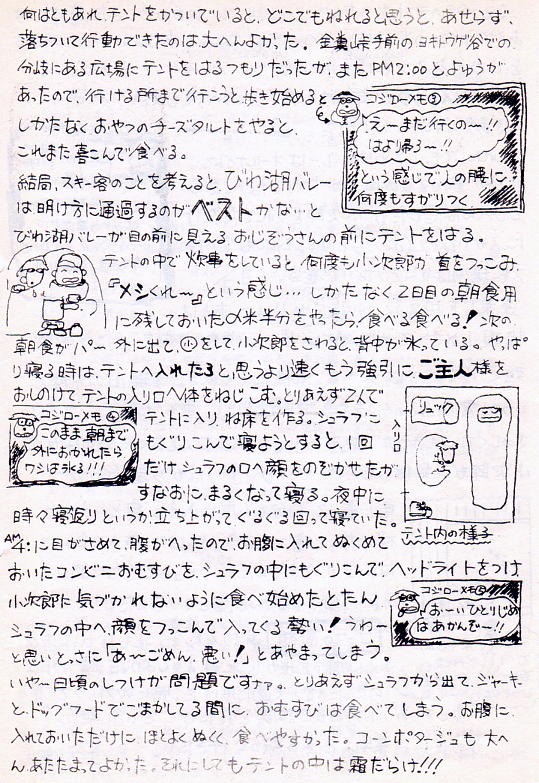 何はともあれ、テントをかついでいると、どこでもねれると思うと、あせらず、
落ちついて行動できたのは大へんよかった。金糞峠手前のヨキトウゲ谷での
分岐にある広場にテントをはるつもりだったが、まだPM2:00とよゆうが
あったので、行ける所まで行こうと歩き始めると
しかたなくおやつのチーズタルトをやると、
これまた喜こんで食べる。
コジローメモ③
えーまだ行くの〜!!
はよ帰ろ〜!!
という感じで人の腰に
何度もすがりつく。
結局、スキー客のことを考えると、びわ湖バレー
は明け方に通過するのがベストかな…と
びわ湖バレーが目の前に見えるおじぞうさんの前にテントをはる。
テントの中で炊事をしていると何度も小次郎が首をつっこみ、
『メシくれ〜』という感じ… しかたなく、2日目の朝食用
に残しておいたα米半分をやったら、食べる食べる!次の
朝食がパー 外に出て、小をして、小次郎をさわると背中が氷っている。やっぱ
り寝る時は、テントへ入れたろと思うより速くもう強引にご主人様を
おしのけて、テントの入り口へ体をねじこむ。とりあえず2人で
コジローメモ④
このまま朝まで
外におかれたら
ワシは氷る!!!
テントに入り、ね床を作る。シュラフに
もぐりこんで寝ようとすると、1回
だけシュラフの口へ顔をのぞかせたが
すなおに、まるくなって寝る。夜中に
時々寝返りというか立ち上がってぐるぐる回って寝ていた。
リュック
入り口
テント内の様子
AM4:に目がさめて、腹がへったので、お腹に入れてぬくめて
おいたコンビニおむすびを、シュラフの中にもぐりこんで、ヘッドライトをつけ
小次郎に気づかれないように食べ始めたとたん
シュラフの中へ、顔をつっこんで入ってくる勢い!うわー
コジローメモ⑤
おーいひとりじめ
はあかんぞー!!
と思いとっさに「あ〜ごめん、悪い!」とあやまってしまう。
いやー日頃のしつけが問題ですナァ。とりあえずシュラフから出て、ジャーキー
と、ドッグフードでごまかしてる間に、おむすびは食べてしまう。お腹に、
入れておいただけにほとよくぬくく、食べやすかった。コーンポタージュも大へ
ん、あたたまってよかった。それにしてもテントの中は霜だらけ!!!